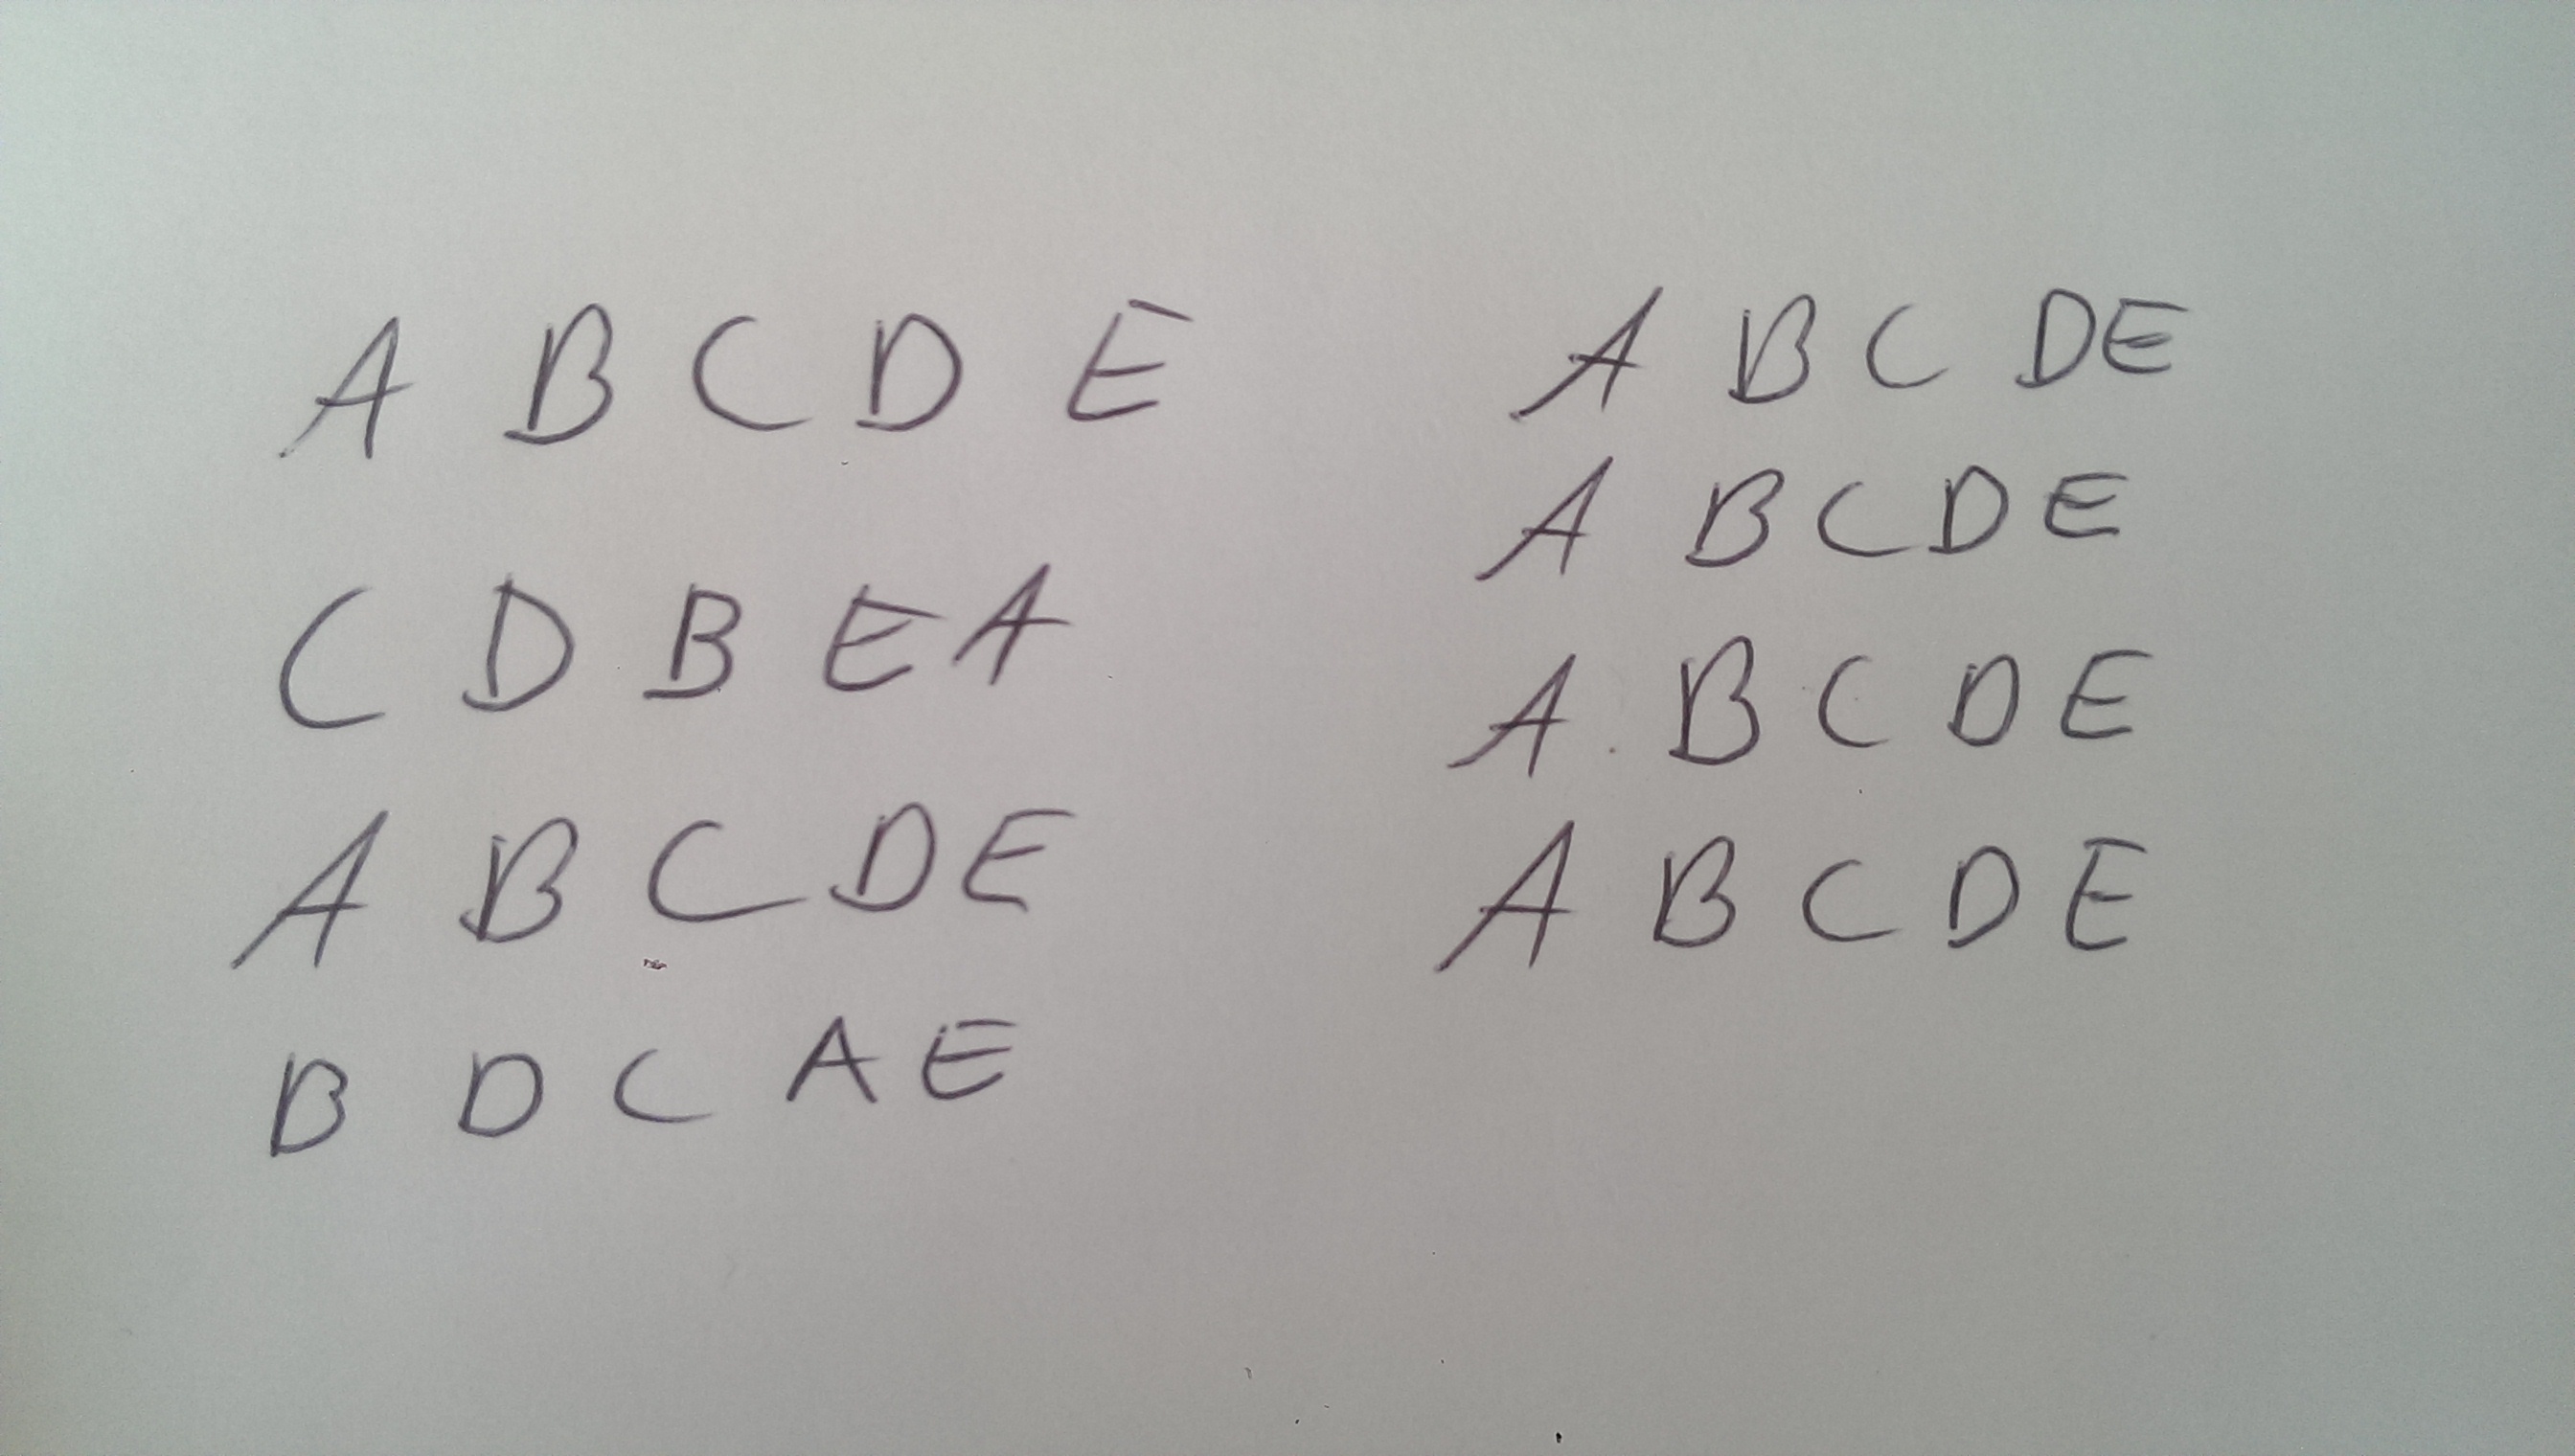 A B C D E
C D B E A
A B C D E
B D C A E
A B C D E
A B C D E
A B C D E
A B C D E